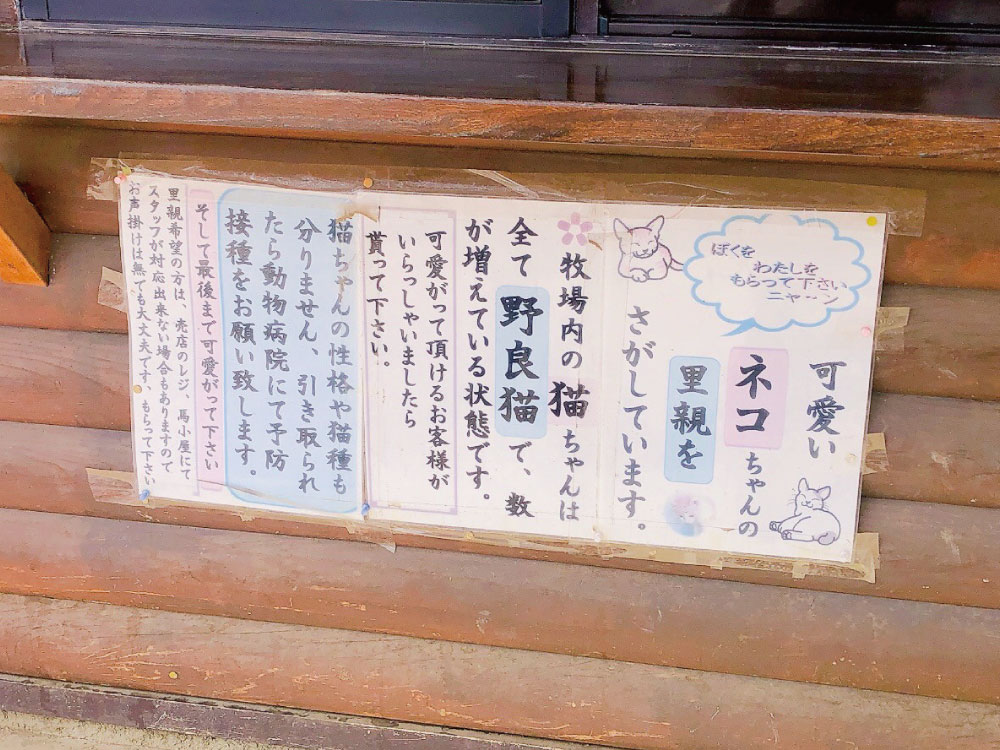 ぼくを
わたしを
もらって下さい
ニャーン
可愛い
ネコちゃんの
里親を
さがしています。
牧場内の猫ちゃんは
全て野良猫で、数
が増えている状態です。
可愛がって頂けるお客様が
いらっしゃいましたら
貰って下さい。
猫ちゃんの性格や猫種も
分りません、引き取られ
たら動物病院にて予防
接種をお願い致します。
そして最後まで可愛がって下さい
里親希望の方は、売店のレジ、馬小屋にて
スタッフが対応出来ない場合もありますので
お声掛けは無でも大丈夫です、もらって下さい